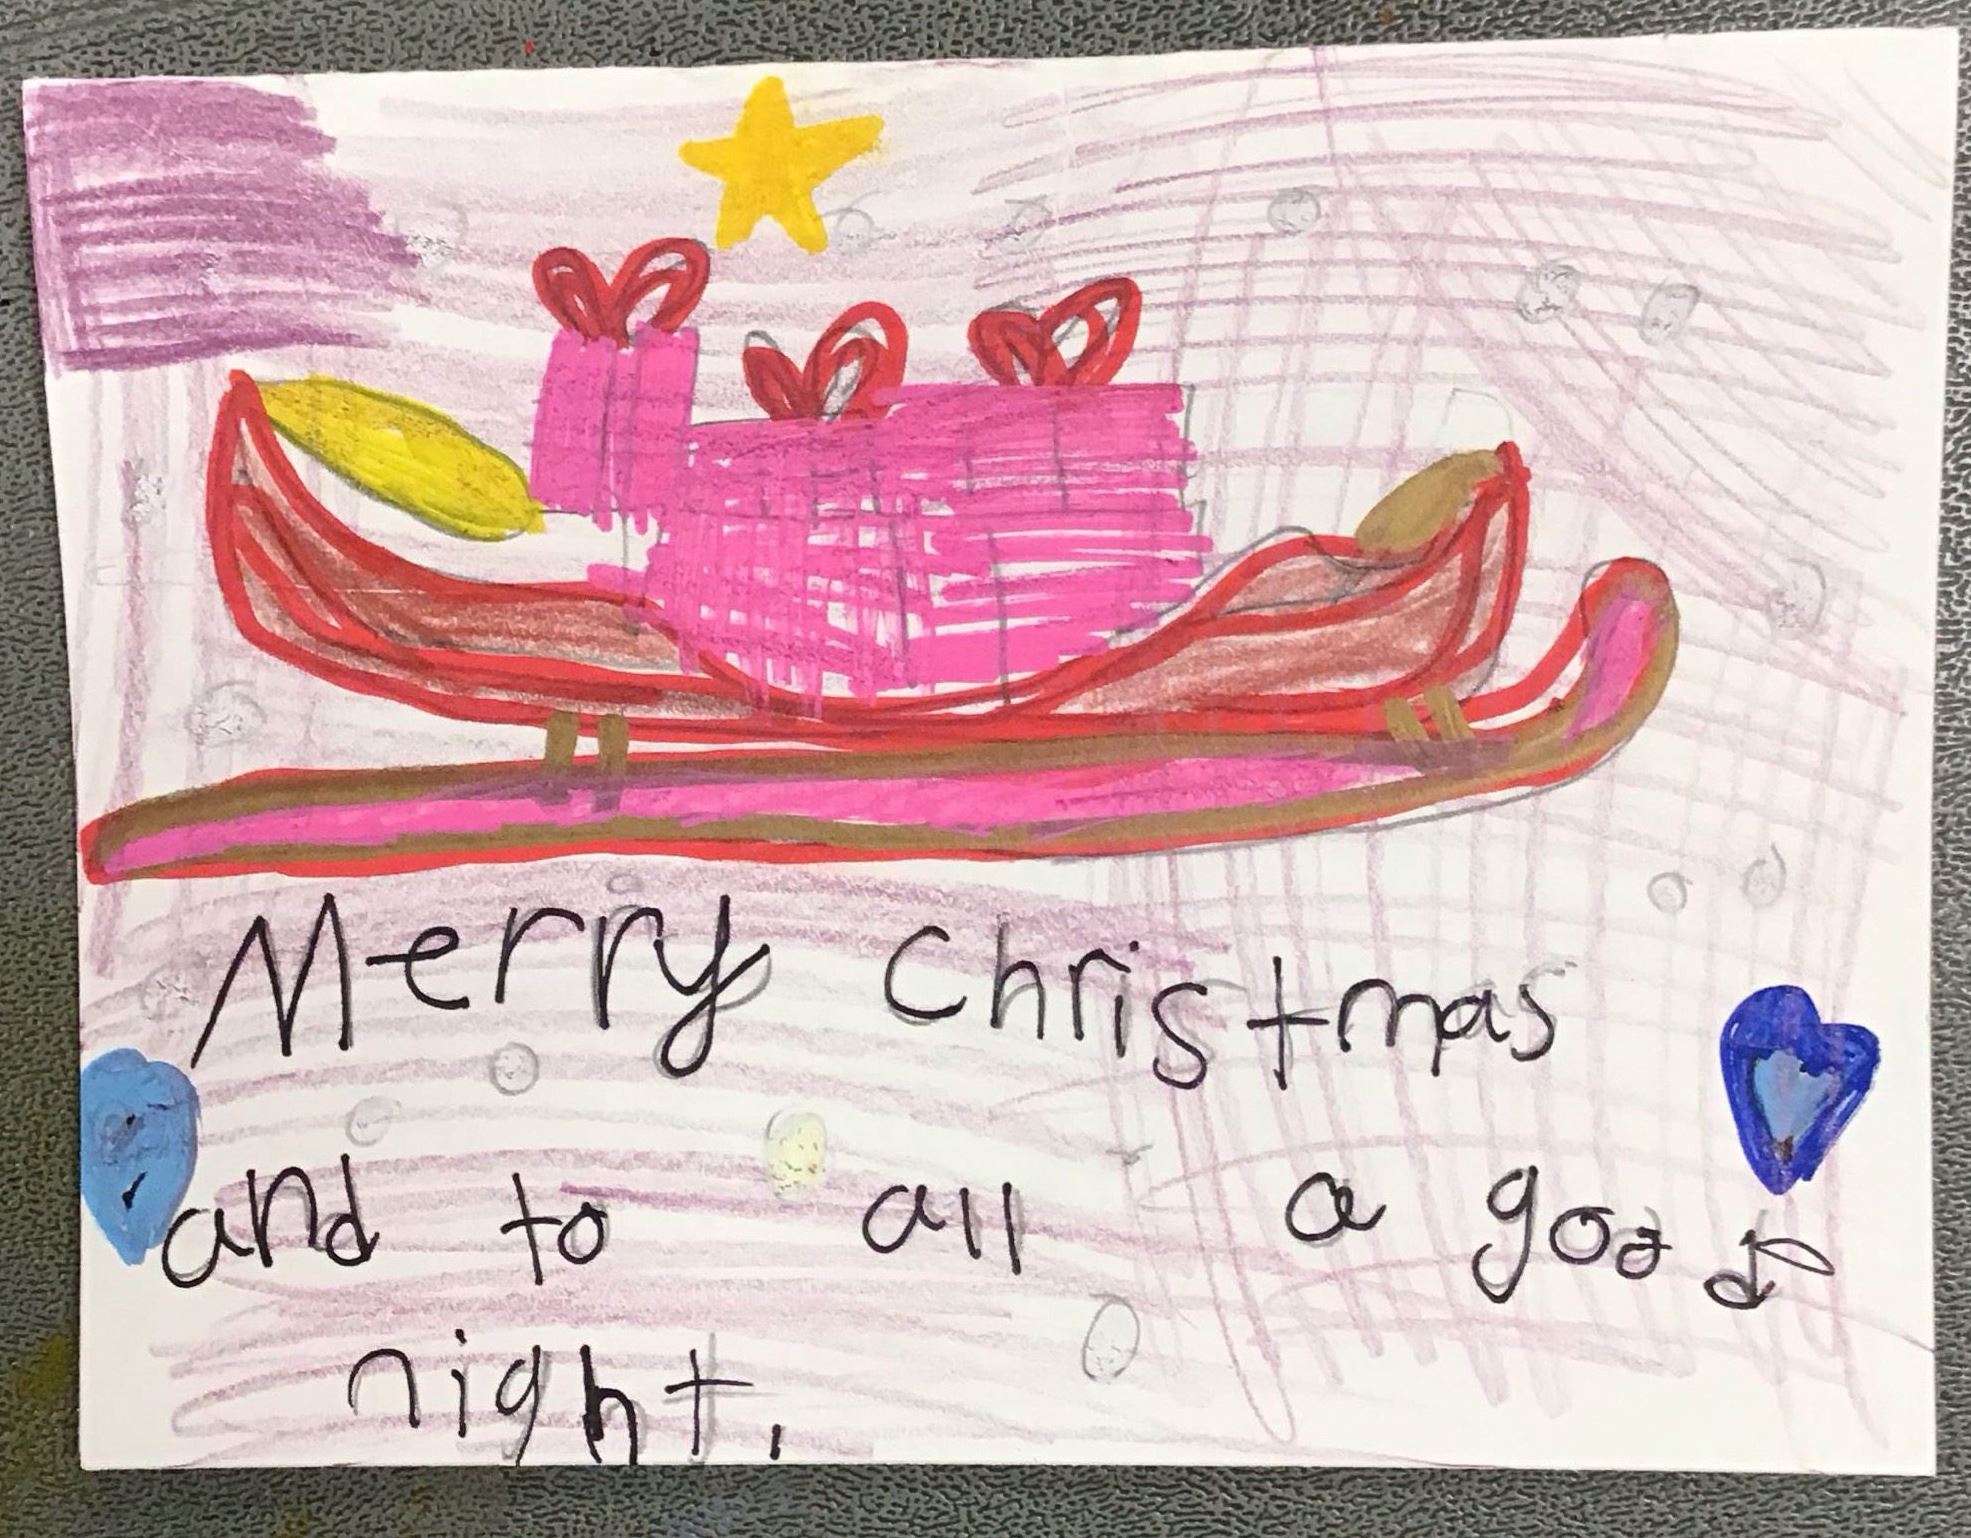 Merry Christmas
and to all a good
night.